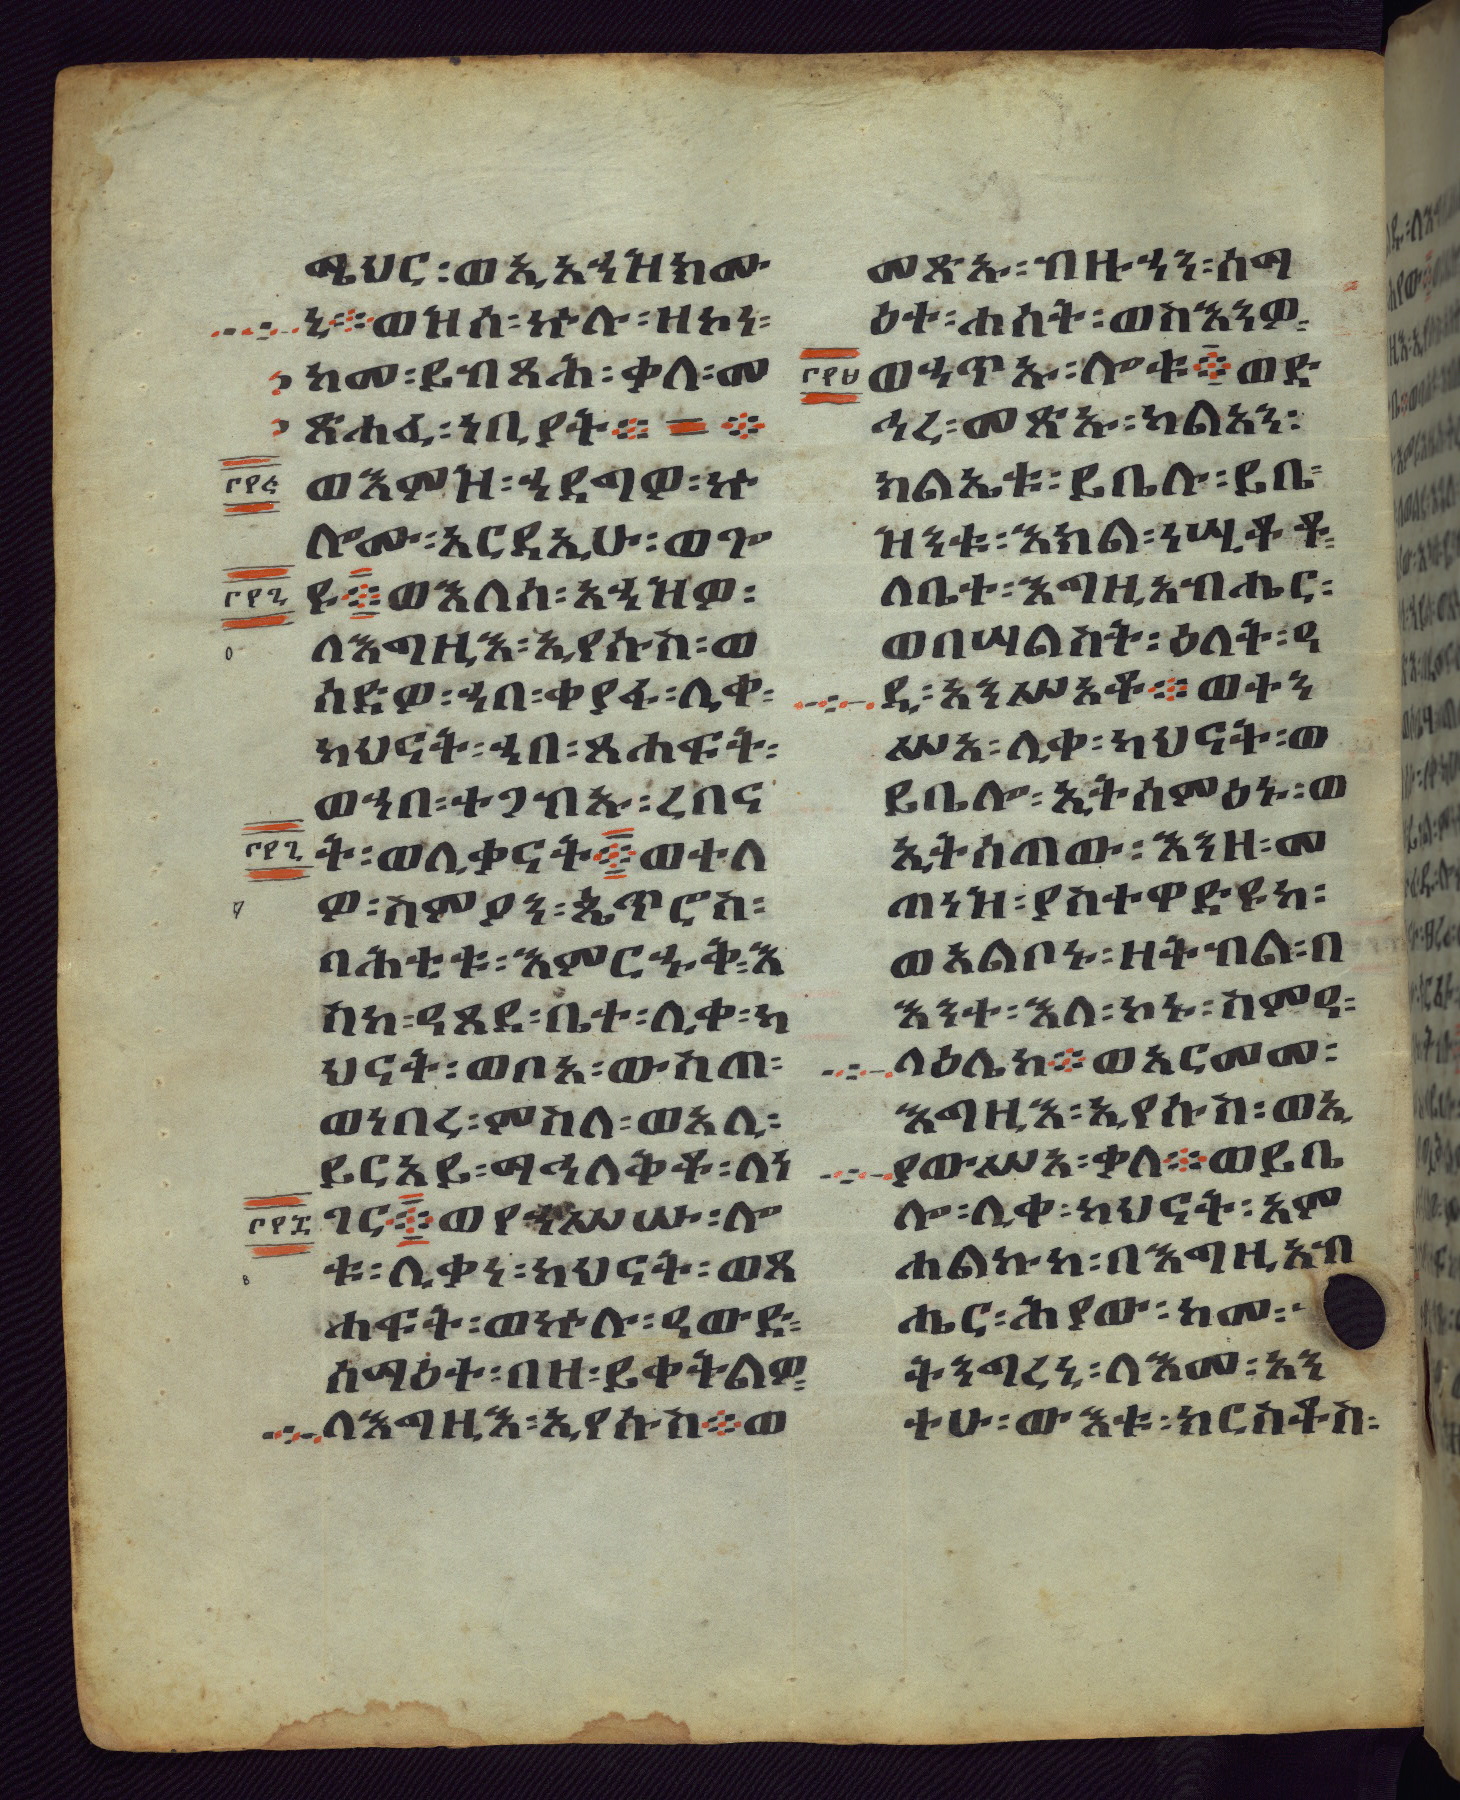 ሜህር፡ወኢአኀዝክሙ
ኒ፨ወዝሰ፡ኵሉ፡ዘኮነ፡
ከመ፡ይብጻሕ፡ቃለ፡መ
ጽሐፈ፡ነቢያት፨ ፨
ወእምዝ፡ኀደግዎ፡ኵ
ሎሙ፡አርዳኢሁ፡ወጐ
ዩ፨ወእለሰ፡አኀዝዎ፡
ለእግዚእ፡ኢየሱስ፡ወ
ሰድዎ፡ኀበ፡ቀያፋ፡ሊቀ፡
ካህናት፡ኀበ፡ጸሐፍት፡
ወኀበ፡ተጋብኡ፡ረበና
ት፡ወሊቃናት፨ወተለ
ዎ፡ስምዖን፡ጴጥሮስ፡
ባሕቲቱ፡እምርኁቅ፡እ
ስከ፡ዐጸደ፡ቤተ፡ሊቀ፡ካ
ህናት፡ወቦአ፡ውስጠ፡
ወነበረ፡ምስለ፡ወአሊ፡
ይርአይ፡ማኀለቅቶ፡ለነ
ገር፨ወየኀሥሡ፡ሎ
ቱ፡ሊቃነ፡ካህናት፡ወጸ
ሐፍት፡ወኵሉ፡ዐውድ፡
ሰማዕተ፡በዘ፡ይቀትልዎ፡
ለእግዚእ፡ኢየሱስ፨ወ
መጽኡ፡ብዙኀን፡ሰማ
ዕተ፡ሐሰት፡ወስእንዎ፡
፫፻፲፬
ወኀጥኡ፡ሎቱ፨ወድ
ኅረ፡መጽኡ፡ካልአን፡
ክልኤቱ፡ይቤሉ፡ይቤ፡
ዝንቱ፡እክል፡ነሢቶቶ፡
ለቤተ፡እግዚአብሔር፡
ወበሣልስት፡ዕለት፡ዳ
ዲ፡አንሥኦቶ፨ወተን
ሥአ፡ሊቀ፡ካህናት፡ወ
ይቤሎ፡ኢትሰምዕኑ፡ወ
ኢትሰጠው፡እንዘ፡መ
ጠነዝ፡ያስተዋድዩከ፡
ወአልቦኑ፡ዘትብል፡በ
እንተ፡እለ፡ኮኑ፡ስምዐ፡
ላዕሌከ፨ወአርመመ፡
እግዚእ፡ኢየሱስ፡ወኢ
ያውሥአ፡ቃለ፨ወይቤ
ሎ፡ሊቀ፡ካህናት፡አም
ሐልኩከ፡በእግዚአብ
ሔር፡ሕያው፡ከመ፡
ትንግረኒ፡ለእመ፡አን
ተሁ፡ውእቱ፡ክርስቶስ፡